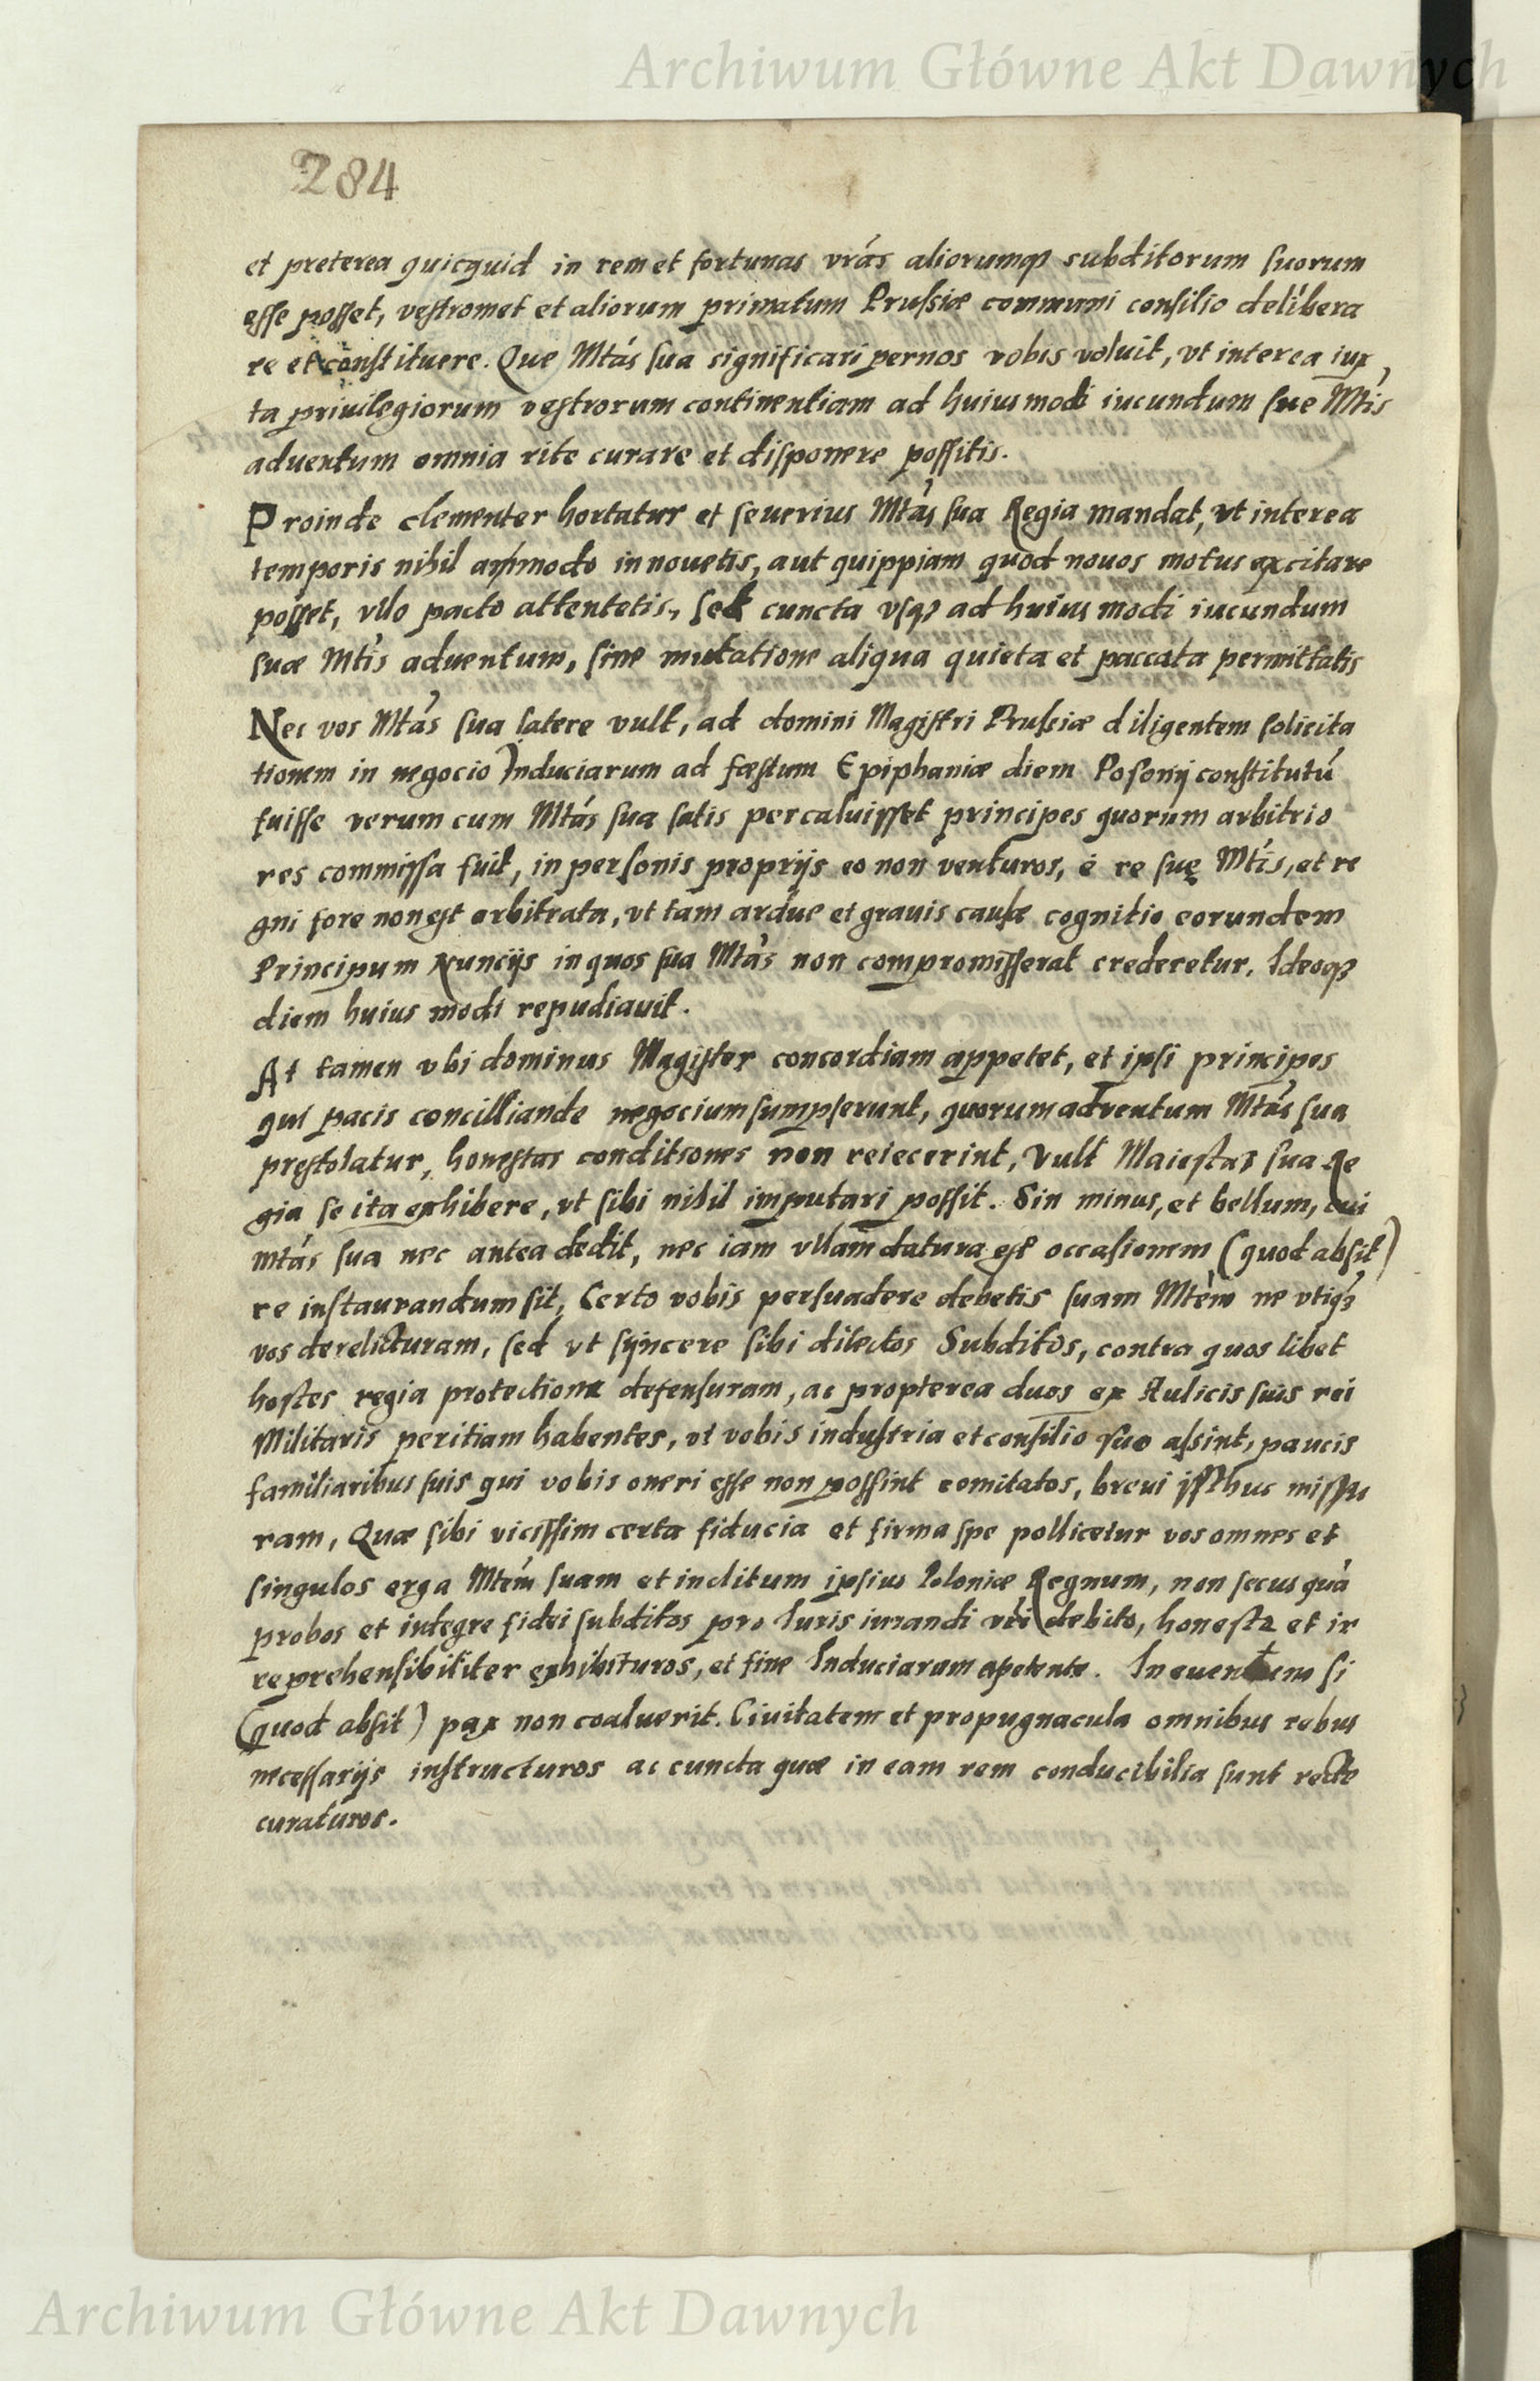 Archiwum Główne Akt Dawnych
284
et preterea quicquid in rem et fortunas vrás aliorumqꝫ subditorum suorum
esse posset, vestromet et aliorum primatum Prussiæ communi consilio delibera
re et constituere. Que Mtás sua significari per nos vobis voluit, vt interea iux,
ta priuilegiorum vestrorum continentiam ad huiusmodi iucundum sue Mtis
aduentum omnia rite curare et disponere possitis.
Proinde clementer hortatur et seuerius Mtás sua Regia mandat, vt interea
temporis nihil innouetis, aut quippiam quod nouos motus excitare
posset, vllo pacto attentetis, sed cuncta vsqꝫ ad huiusmodi iucundum
suæ Mtis aduentum, sine mutatione aliqua quieta et paccata permittatis
Nec vos Mtás sua latere vult, ad domini Magistri Prussiæ diligentem solicita
tionem in negocio Induciarum ad fæstum Epiphaniæ diem Posonij constitutú
fuisse verum cum Mtás sua satis percaluisset principes quorum arbitrio
res commissa fuit, in personis proprijs eo non venturos, é re suę Mtis, et re
gni fore non est arbitrata, vt tam ardue et grauis causæ cognitio eorundem
Principum Nuncijs in quos sua Mtás non compromisserat crederetur. Ideoqꝫ
diem huiusmodi repudiauit.
At tamen vbi dominus Magister concordiam appetet, et ipsi principes
qui pacis concilliande negocium sumpserunt, quorum adventum Mtás sua
prestolatur, honestas conditiones non reiecerint, Vult Maiestas sua Re
gia se ita exhibere, vt sibi nihil imputari possit. Sin minus, et bellum, cui
mtás sua nec antea dedit, nec iam vllam datura est occasionem (quod absit)
re instaurandum sit, Certo vobis persuadere debetis suam Mtém ne vtiqꝫ
vos derelicturam, sed vt sÿncere sibi dilectos Subditos, contra quos libet
hostes regia protectione defensuram, ac propterea duos ex Aulicis suis rei
Militaris peritiam habentes, vt vobis industria et consilio suo assint, paucis
familiaribus suis qui vobis oneri esse non possint comitatos, breui isthuc missu
ram, Quæ sibi vicissim certa fiducia et firma spe pollicetur vos omnes et
singulos erga Mtém suam et inclitum ipsius Poloniæ Regnum, non secus quá
probos et integre fidei subditos pro Iuris iurandi vri debito, honeste et ir
reprehensibiliter exhibituros, et fine Induciarum apetente. In euentum si
(quod absit) pax non coaluerit. Ciuitatem et propugnacula omnibus rebus
necessarijs instructuros ac cuncta quæ in eam rem conducibilia sunt recte
curaturos.
Archiwum Główne Akt Dawnych